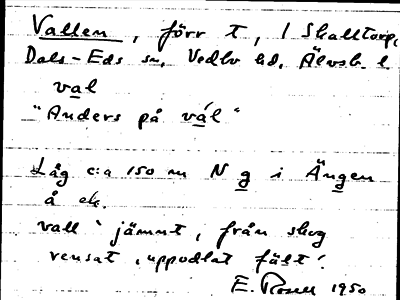 Vallen, förr t, / Skalltorp,
Dals-Eds sn, Vedbo hd, Älvsb. l
val
"Anders på vál"
Låg c:a 150 m N g i Ängen
å ek.
vall `jämnt, från skog
rensat, uppodlat fält´.
E. Rosell 1950